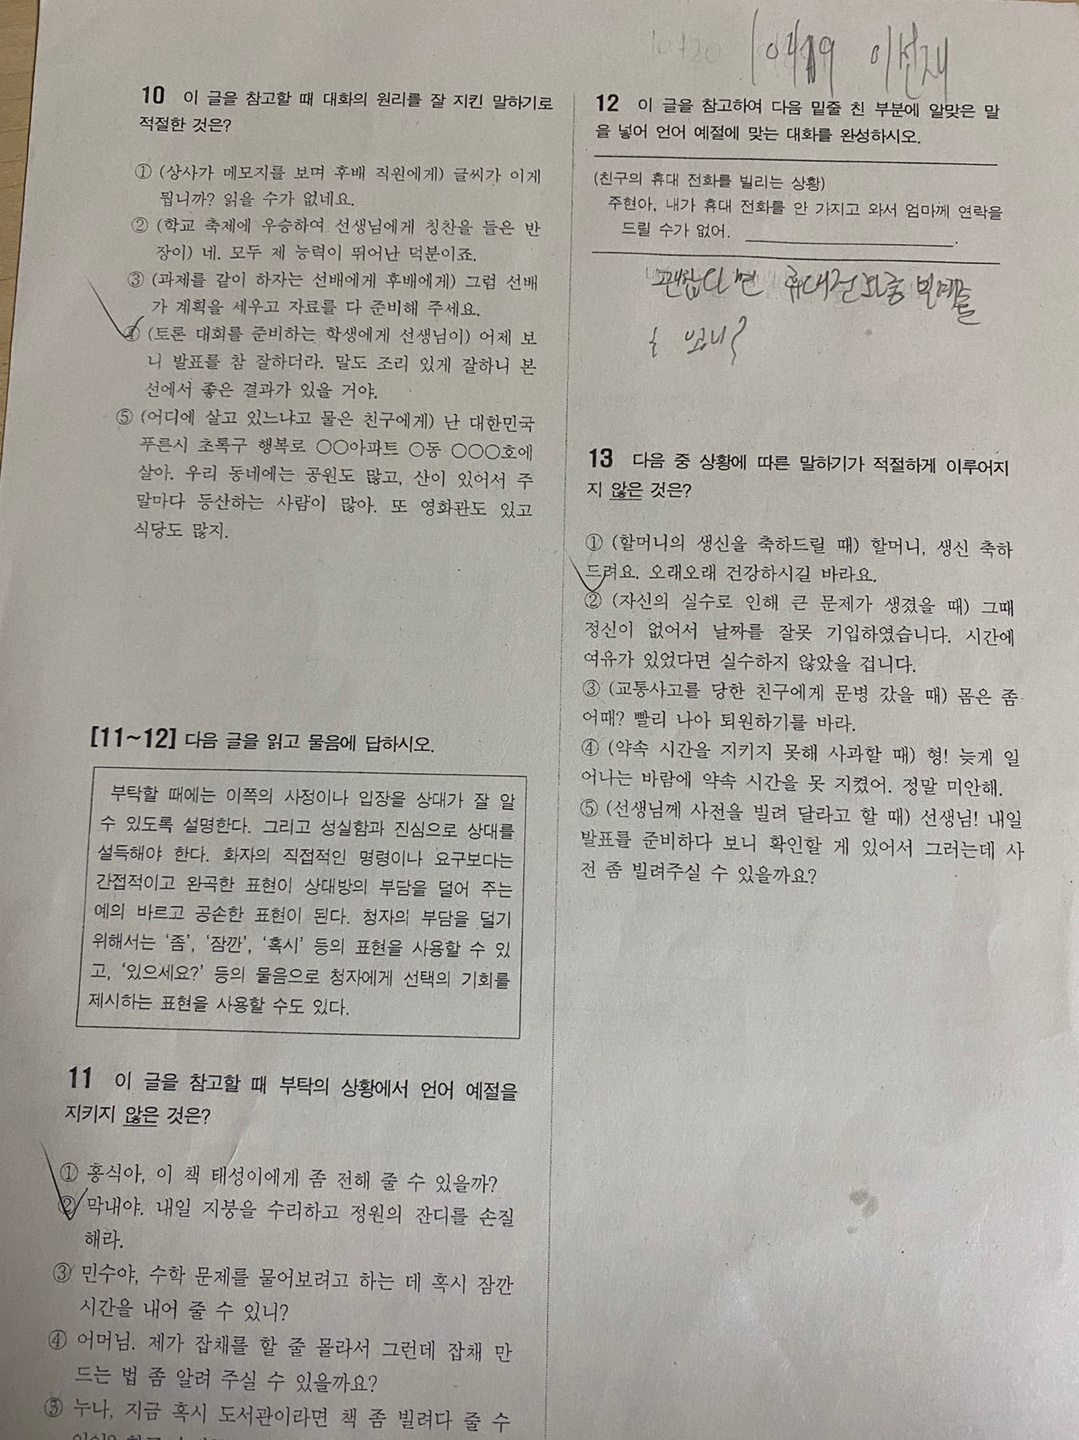 이선재
10 이 글을 참고할 때 대화의 원리를 잘 지킨 말하기로
적절한 것은?
① (상사가 메모지를 보며 후배 직원에게) 글씨가 이게
뭡니까? 읽을 수가 없네요.
② (학교 축제에 우승하여 선생님에게 칭찬을 들은 반
장이) 네. 모두 제 능력이 뛰어난 덕분이죠.
③ (과제를 같이 하자는 선배에게 후배에게) 그럼 선배
가 계획을 세우고 자료를 다 준비해 주세요.
④ (토론 대회를 준비하는 학생에게 선생님이) 어제 보
니 발표를 참 잘하더라. 말도 조리 있게 잘하니 본
선에서 좋은 결과가 있을 거야.
⑤ (어디에 살고 있느냐고 물은 친구에게) 난 대한민국
푸른시 초록구 행복로 ○○아파트 ○동 ○○○호에
살아. 우리 동네에는 공원도 많고, 산이 있어서 주
말마다 등산하는 사람이 많아. 또 영화관도 있고
식당도 많지.
[11~12] 다음 글을 읽고 물음에 답하시오.
부탁할 때에는 이쪽의 사정이나 입장을 상대가 잘 알
수 있도록 설명한다. 그리고 성실함과 진심으로 상대를
설득해야 한다. 화자의 직접적인 명령이나 요구보다는
간접적이고 완곡한 표현이 상대방의 부담을 덜어 주는
예의 바르고 공손한 표현이 된다. 청자의 부담을 덜기
위해서는 ‘좀’, ‘잠깐’, ‘혹시’ 등의 표현을 사용할 수 있
고, ‘있으세요?’ 등의 물음으로 청자에게 선택의 기회를
제시하는 표현을 사용할 수도 있다.
11 이 글을 참고할 때 부탁의 상황에서 언어 예절을
지키지 않은 것은?
① 홍식아, 이 책 태성이에게 좀 전해 줄 수 있을까?
② 막내야. 내일 지붕을 수리하고 정원의 잔디를 손질
해라.
③ 민수야, 수학 문제를 물어보려고 하는 데 혹시 잠깐
시간을 내어 줄 수 있니?
④ 어머님. 제가 잡채를 할 줄 몰라서 그런데 잡채 만
드는 법 좀 알려 주실 수 있을까요?
⑤ 누나, 지금 혹시 도서관이라면 책 좀 빌려다 줄 수
12 이 글을 참고하여 다음 밑줄 친 부분에 알맞은 말
을 넣어 언어 예절에 맞는 대화를 완성하시오.
(친구의 휴대 전화를 빌리는 상황)
주현아, 내가 휴대 전화를 안 가지고 와서 엄마께 연락을
드릴 수가 없어.
괜찮다면 휴대전화좀 빌려줄
수 있니?
13 다음 중 상황에 따른 말하기가 적절하게 이루어지
지 않은 것은?
① (할머니의 생신을 축하드릴 때) 할머니, 생신 축하
드려요. 오래오래 건강하시길 바라요.
② (자신의 실수로 인해 큰 문제가 생겼을 때) 그때
정신이 없어서 날짜를 잘못 기입하였습니다. 시간에
여유가 있었다면 실수하지 않았을 겁니다.
③ (교통사고를 당한 친구에게 문병 갔을 때) 몸은 좀
어때? 빨리 나아 퇴원하기를 바라.
④ (약속 시간을 지키지 못해 사과할 때) 형! 늦게 일
어나는 바람에 약속 시간을 못 지켰어. 정말 미안해.
⑤ (선생님께 사전을 빌려 달라고 할 때) 선생님! 내일
발표를 준비하다 보니 확인할 게 있어서 그러는데 사
전 좀 빌려주실 수 있을까요?